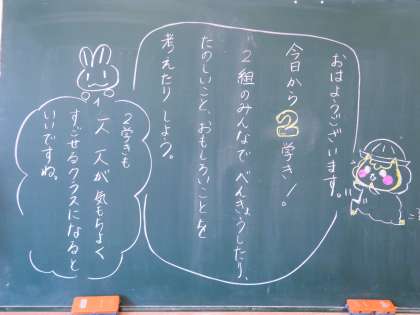 おはようございます。
今日から2学き!。
2組のみんなでべんきょうしたり、
たのしいこと、おもしろいことを
考えたりしよう。
2学きも
一人一人が気もちよく
すごせるクラスになると
いいですね。